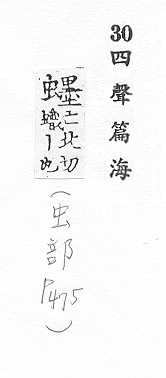 30四聲篇海
蟔亡北切
蟙丨也
（虫部P475）